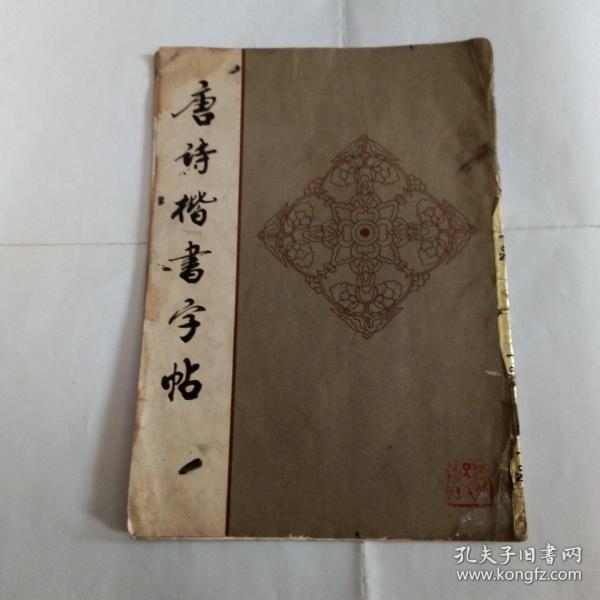 唐詩楷書字帖
一
孔夫子旧书网
www.kongfz.com